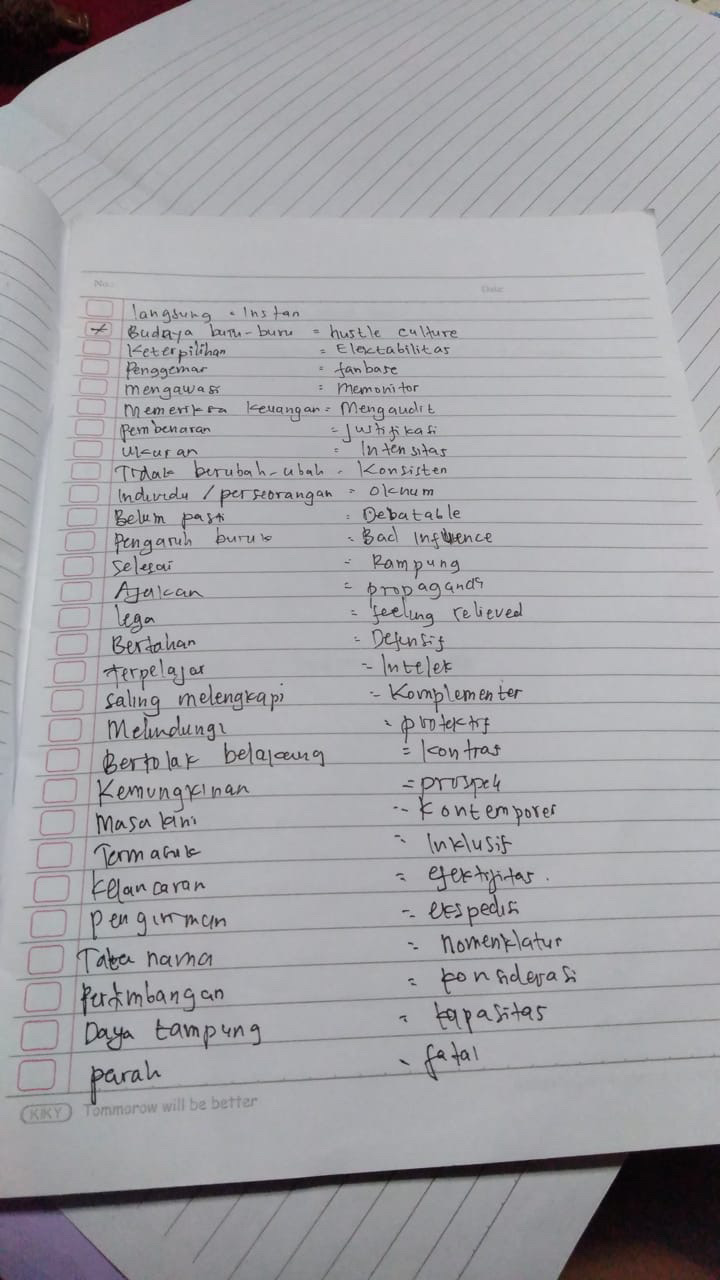 No.: Date:
langsung = Instan
Budaya buru-buru = hustle culture
Keterpilihan = Elektabilitas
Penggemar = fanbase
mengawasi = Memonitor
Memeriksa keuangan = Mengaudit
Pembenaran = Justifikasi
Ukuran = Intensitas
Tidak berubah-ubah = Konsisten
Individu / perseorangan = Oknum
Belum pasti = Debatable
Pengaruh buruk = Bad Influence
Selesai = Rampung
Ajakan = propaganda
lega = feeling relieved
Bertahan = Defensif
terpelajar = Intelek
saling melengkapi = Komplementer
Melindungi = protektif
Bertolak belakang = Kontras
Kemungkinan = prospek
Masa kini = Kontemporer
Termasuk = Inklusif
Kelancaran = efektifitas.
pengiriman = ekspedisi
Tata nama = nomenklatur
Pertimbangan = konsiderasi
Daya tampung = kapasitas
parah = fatal
KIKY Tommorow will be better